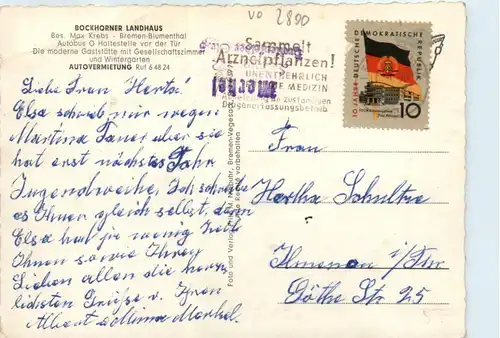 VO 2800
BOCKHORNER LANDHAUS
Bes. Max Krebs - Bremen-Blumenthal
Autobus O Haltestelle vor der Tür
Die moderne Gaststätte mit Gesellschaftszimmer
und Wintergarten
AUTOVERMIETUNG Ruf 6 48 24
Sammelt
Arzneipflanzen!
UNENTBEHRLICH
MEDIZIN
merkel
10 JAHRE DEUTSCHE DEMOKRATISCHE REPUBLIK
10
Liebe Frau Hertha!
Elsa schrieb nur wegen
Martina Taner aber sie
hat erst nächstes Jahr
Jugendweihe. Ich schreibe
es Ihnen gleich selbst, denn
Elsa hat je wenig Zeit
Ihnen sowie Ihren
Lieben allen die herz
lichsten Grüße v. Ihren
Albert u Minna Merkel.
Foto und Verlag: Bremen-Vegesack
Frau
Hertha Schultze
Ilmenau i/Thür
Göthe Str 25